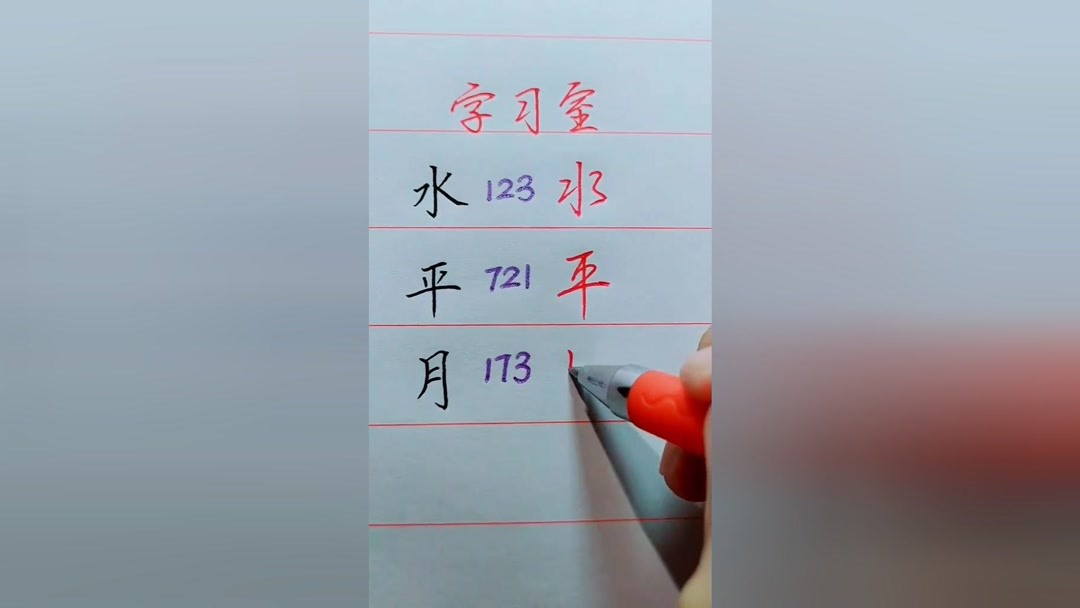 字习室
水 123 水
平 721 平
月 173